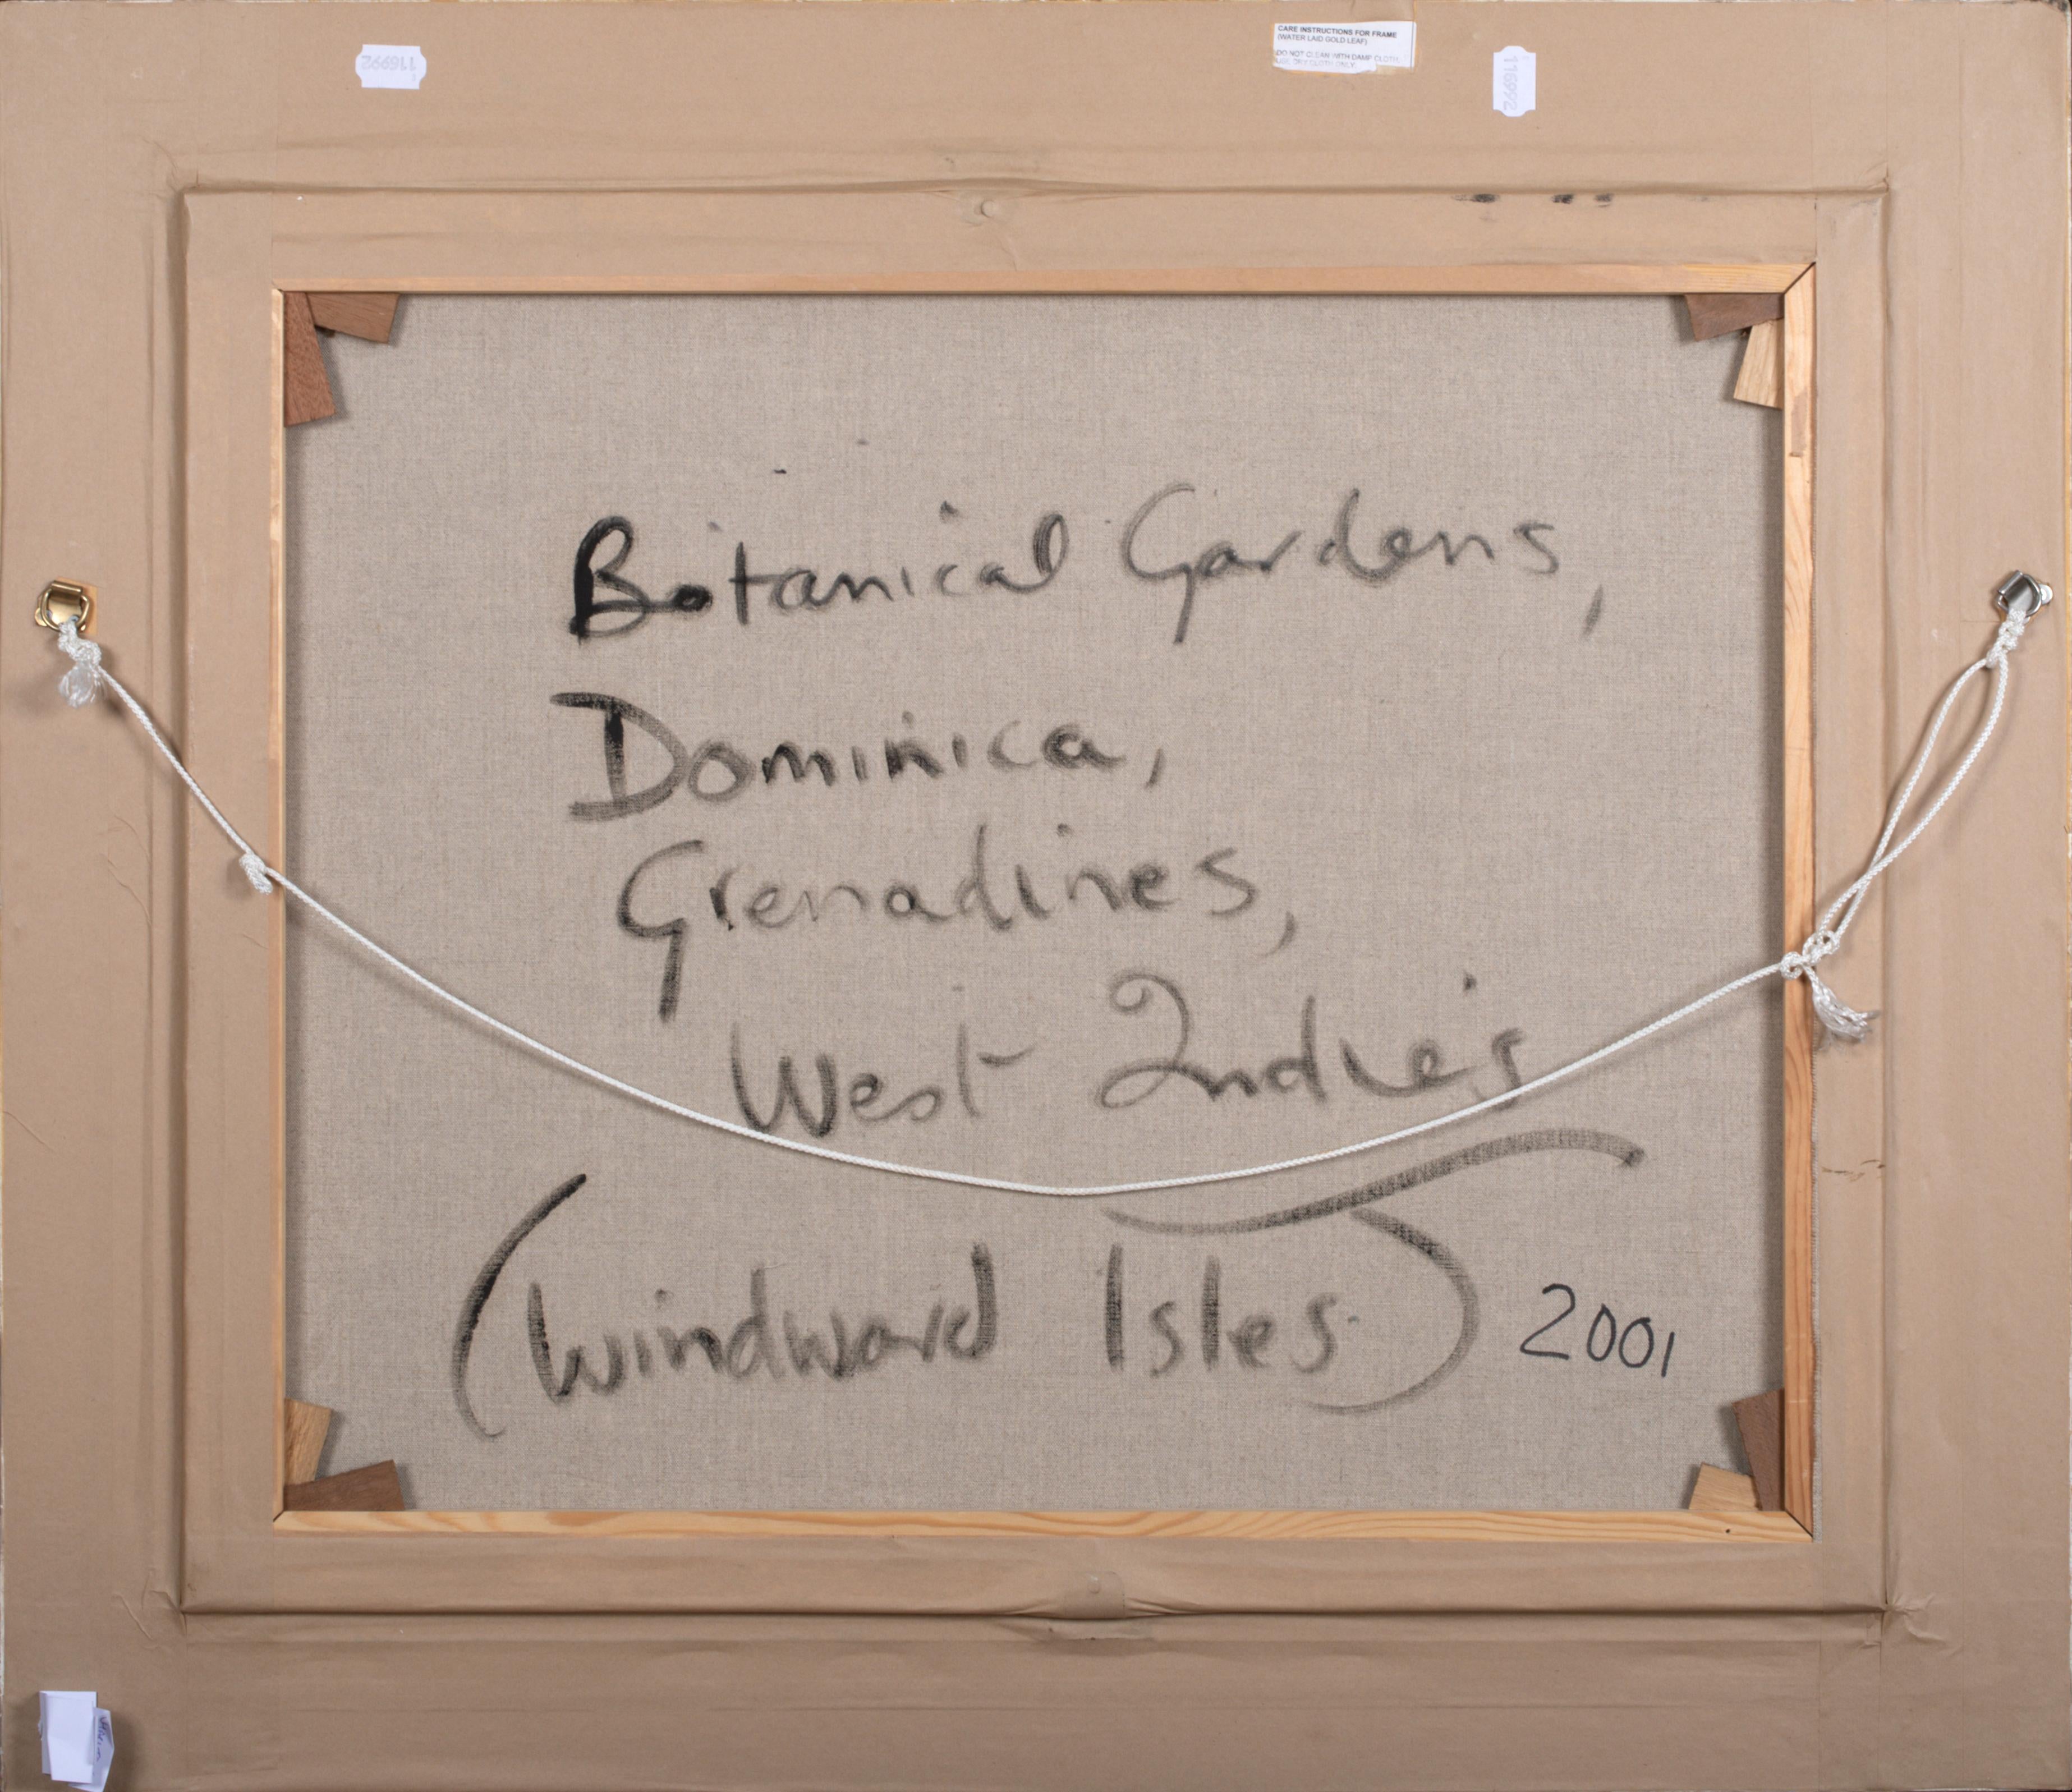 CARE INSTRUCTIONS FOR FRAME
(WATER LAID GOLD LEAF)
DO NOT CLEAN WITH DAMP CLOTH,
USE DRY CLOTH ONLY.
116992
116992
Botanical Gardens,
Dominica,
Grenadines,
West Indies
(Windward Isles.)
2001